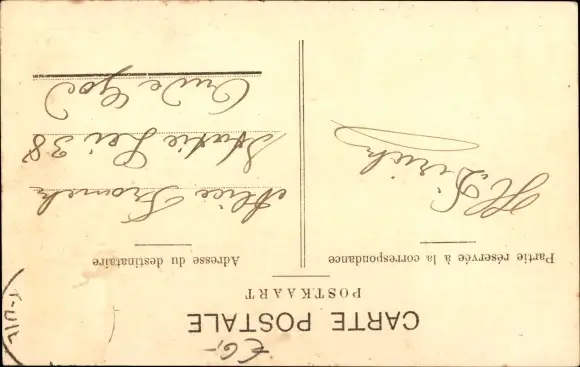 CARTE POSTALE
POSTKAART
Partie réservée à la correspondance
Adresse du destinataire
H. Dirick
Alice Franck
Statie Lei 38
Oude God